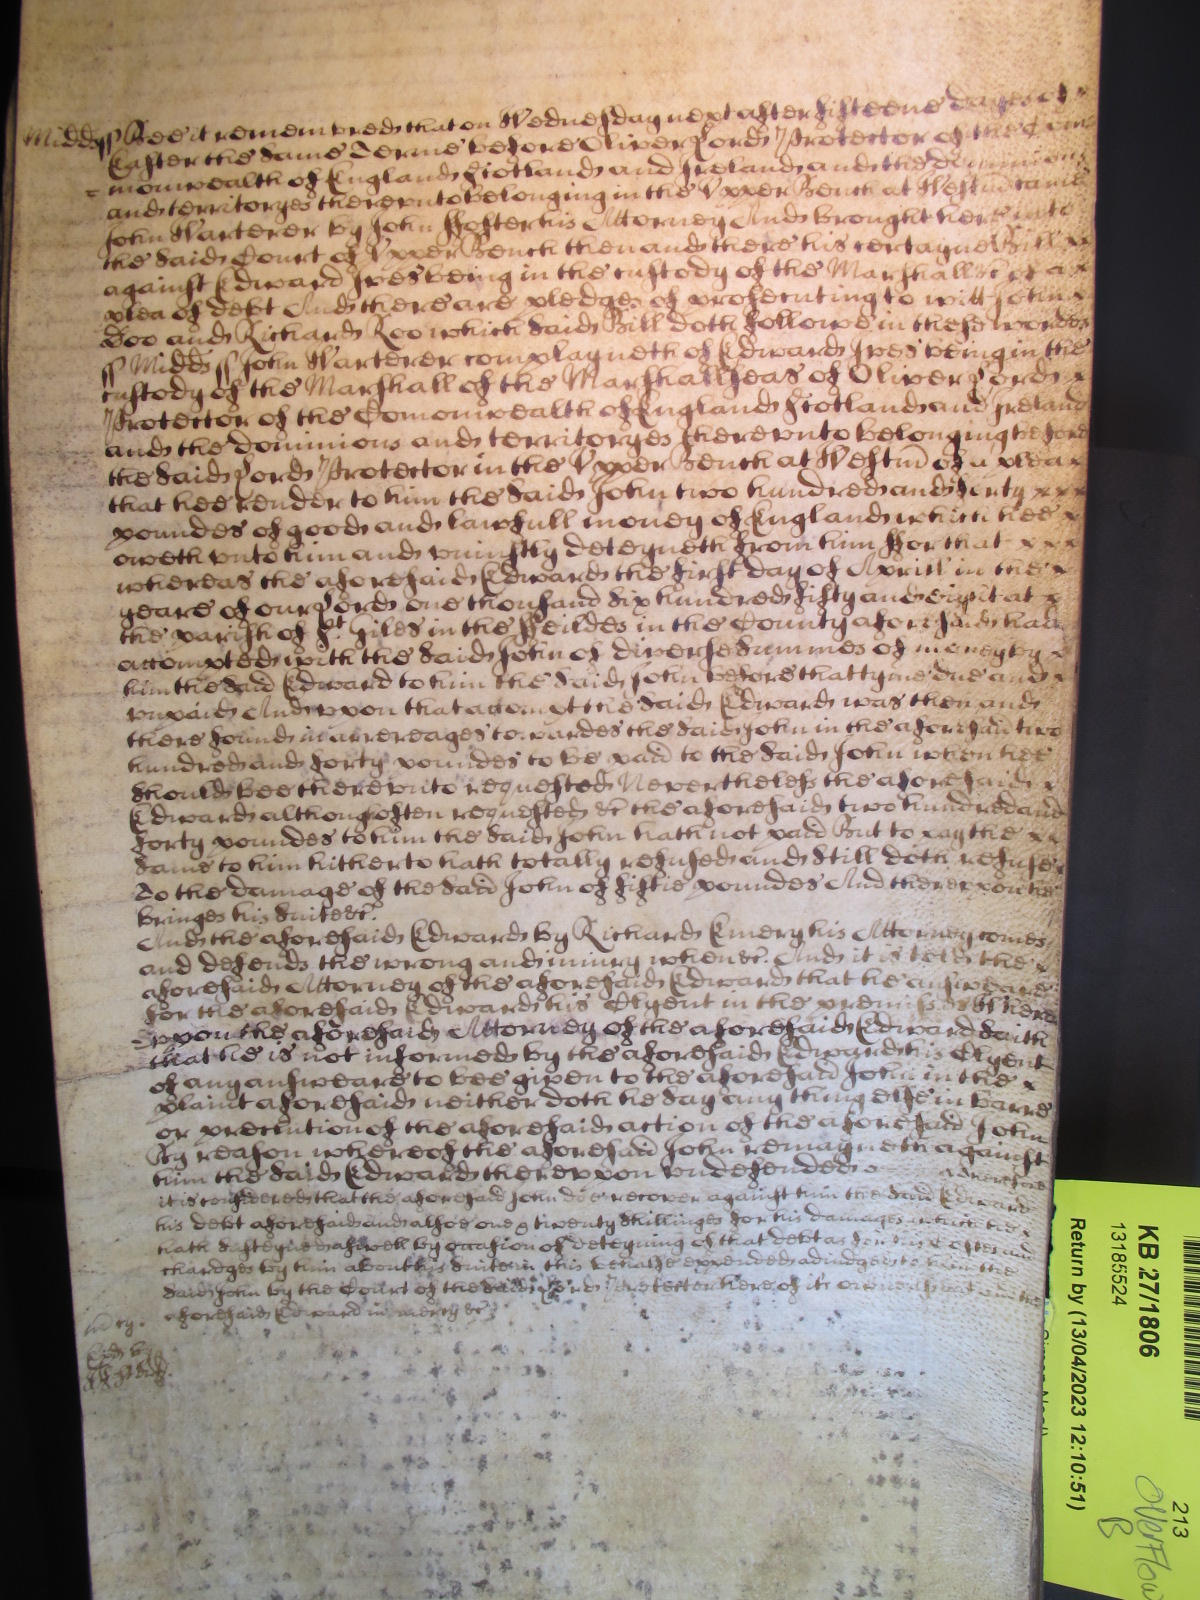 Midds ss Bee it remembred that on Wednesday next after fifteene dayes of
Easter the same Terme before Oliver Lord Protector of the Com
=monwealth of England Scotland and Ireland and the dominions
and territoryes therevnto belonging in the Vpper Bench at Westm̄ came
John Warterer by John Foster his Attorney And brought here into
the said Court of Vpper Bench then and there his certayne Bill x
against Edward Ives being in the custody of the Marshall &c of a x
plea of debt And there are pledges of prosecuting to witt John x
Doo and Richard Roo which said Bill doth followe in these wordes
ss Midds ss John Warterer complayneth of Edward Ives being in the
custody of the Marshall of the Marshallseas of Oliver Lord x
Protector of the Comonwealth of England Scotland and Ireland
and the dominions and territoryes therevnto belonging before
the said Lord Protector in the Vpper Bench at Westm̄ of a plea x
that hee render to him the said John two hundred and forty x x x
poundes of good and lawfull money of England which hee x
oweth vnto him and vniustly deteyneth from him For that x x x
whereas the aforesaid Edward the first day of Aprill in the x
yeare of our Lord one thousand six hundred fifty and eight at x
the parish of St. Giles in the Feildes in the County aforesaid had
accompted with the said John of diverse summes of money by x
him the said Edward to him the said John before that tyme due and x
vnpaid And vpon that accompt the said Edward was then and
there found in arrereages towardes the said John in the aforesaid two
hundred and forty poundes to be paid to the said John when hee
should bee therevnto requested Nevertheless the aforesaid x
Edward although often requested &c the aforesaid two hundred and
forty poundes to him the said John hath not paid But to pay the x x
same to him hitherto hath totally refused and still doth refuse
To the damage of the said John of fiftie poundes And therevpon he
bringes his suite &c.
And the aforesaid Edward by Richard Emery his Attorney comes
and defends the wrong and iniury when &c. And it is told the x
aforesaid Attorney of the aforesaid Edward that he answeare
for the aforesaid Edward his Clyent in the premisses Where
=vpon the aforesaid Attorney of the aforesaid Edward saith
that he is not informed by the aforesaid Edward his Clyent
of any answeare to bee given to the aforesaid John in the x
plaint aforesaid neither doth he say any thing else in barre
or preclution of the aforesaid action of the aforesaid John
By reason whereof the aforesaid John remayneth against
him the said Edward therevpon vndefended Wherefore
it is considered that the aforesaid John doe recover against him the said Edward
his debt aforesaid and alsoe one & twenty shillinges for his damages which he x
hath susteyned aswell by occasion of deteyning of that debt as for his Costes and
chardges by him about his suite in this behalfe expended adiudged to him the
said John by the Court of the said Lord Protector here of
aforesaid Edward in mercy &c
KB 27/1806
13185524
Return by (13/04/2023 12:10:51)
213
Overflow
B